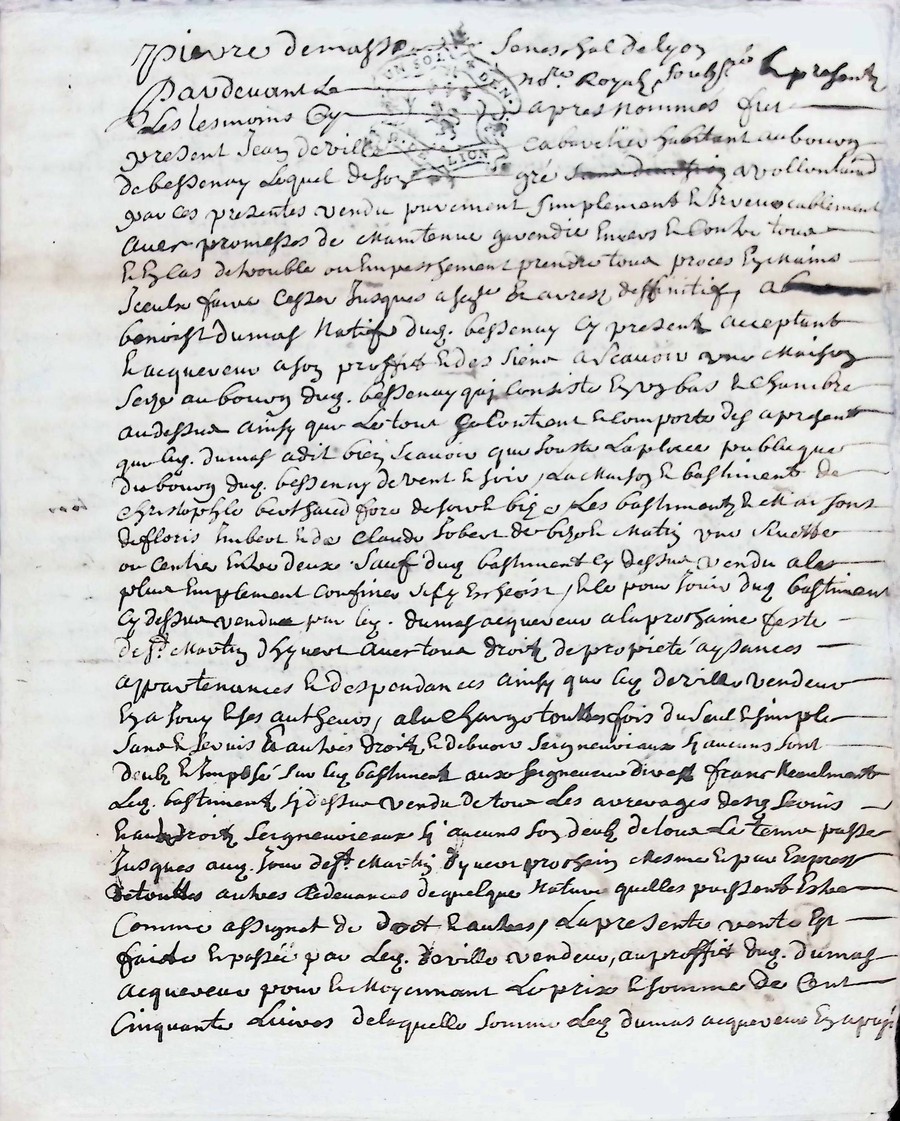 pierre demasso Seneschal de lyon
Pardevant Le no.re Royal soubsné & presentz
Les tesmoins Cy apres nommes fut
present Jean deville Cabaretier habitant au bourg
de bessenay Lequel de son gré a vollontairement
par ces presentes vendu purement simplement & irrevocablement
avec promesses de Maintenue garendie Envers & Contre tous
& En Cas de trouble ou Empeschement prendre tous proces En Mains
Iceulx faire Cesser Jusques a & arrest deffinitif, a
benoist dumas Natif dud. bessenay Cy present acceptant
& acquereur a son proffit & des siens a scavoir une Maison
size au bourg dud. bessenay qui Consiste En un bas & Chambre
audessus ainsy que Le tout se Contient & Comporte des a present
que led. dumas a dit bien scavoir que Jouste La place publique
du bourg dud. bessenay de vent & soir, La Maison & bastiments de
Christophle berthaud de soir & bize Les bastimentz & Maisons
de floris Imbert & de Claude Jobert de bize & Matin une Ruette
ou Centre Entre deux sauf dud bastiment Cy dessus vendu a les
plus Emplement Confiner sify Escheoit, & le pour Jouir dud bastiment
Cy dessus vendu par led. dumas acquereur a la prochaine feste
de st Martin d'hyvert avec tous droitz de propieté aysances
appartenances & despendances ainsy que led deville vendeur
En a Jouy & ses autheurs, a la Charge touttesfois du seul & simple
sans & servis & autres droitz & debvoirs seigneuriaux sy aucuns sont
deubz & Imposé sur led bastiment aux seigneurs direct franc Neaulmoins
Led. bastiment Cy dessus vendu de tous Les arrerages desd servis
& aut droitz seigneuriaux sy aucuns son deubz de tout Le temps passé
Jusques aud. Jour de st Martin d'yver prochain Mesme & par Expres
de touttes autres Redevances de quelque Nature quelles puissent Estre
Comme assignet de dot & autres, La presente vente Est
faicte & passée par Led. deville vendeur, au proffit dud. dumas
acquereur pour & Moyennant Le prix & somme de Cent
Cinquante Livres de laquelle somme Led dumas acquereur En a